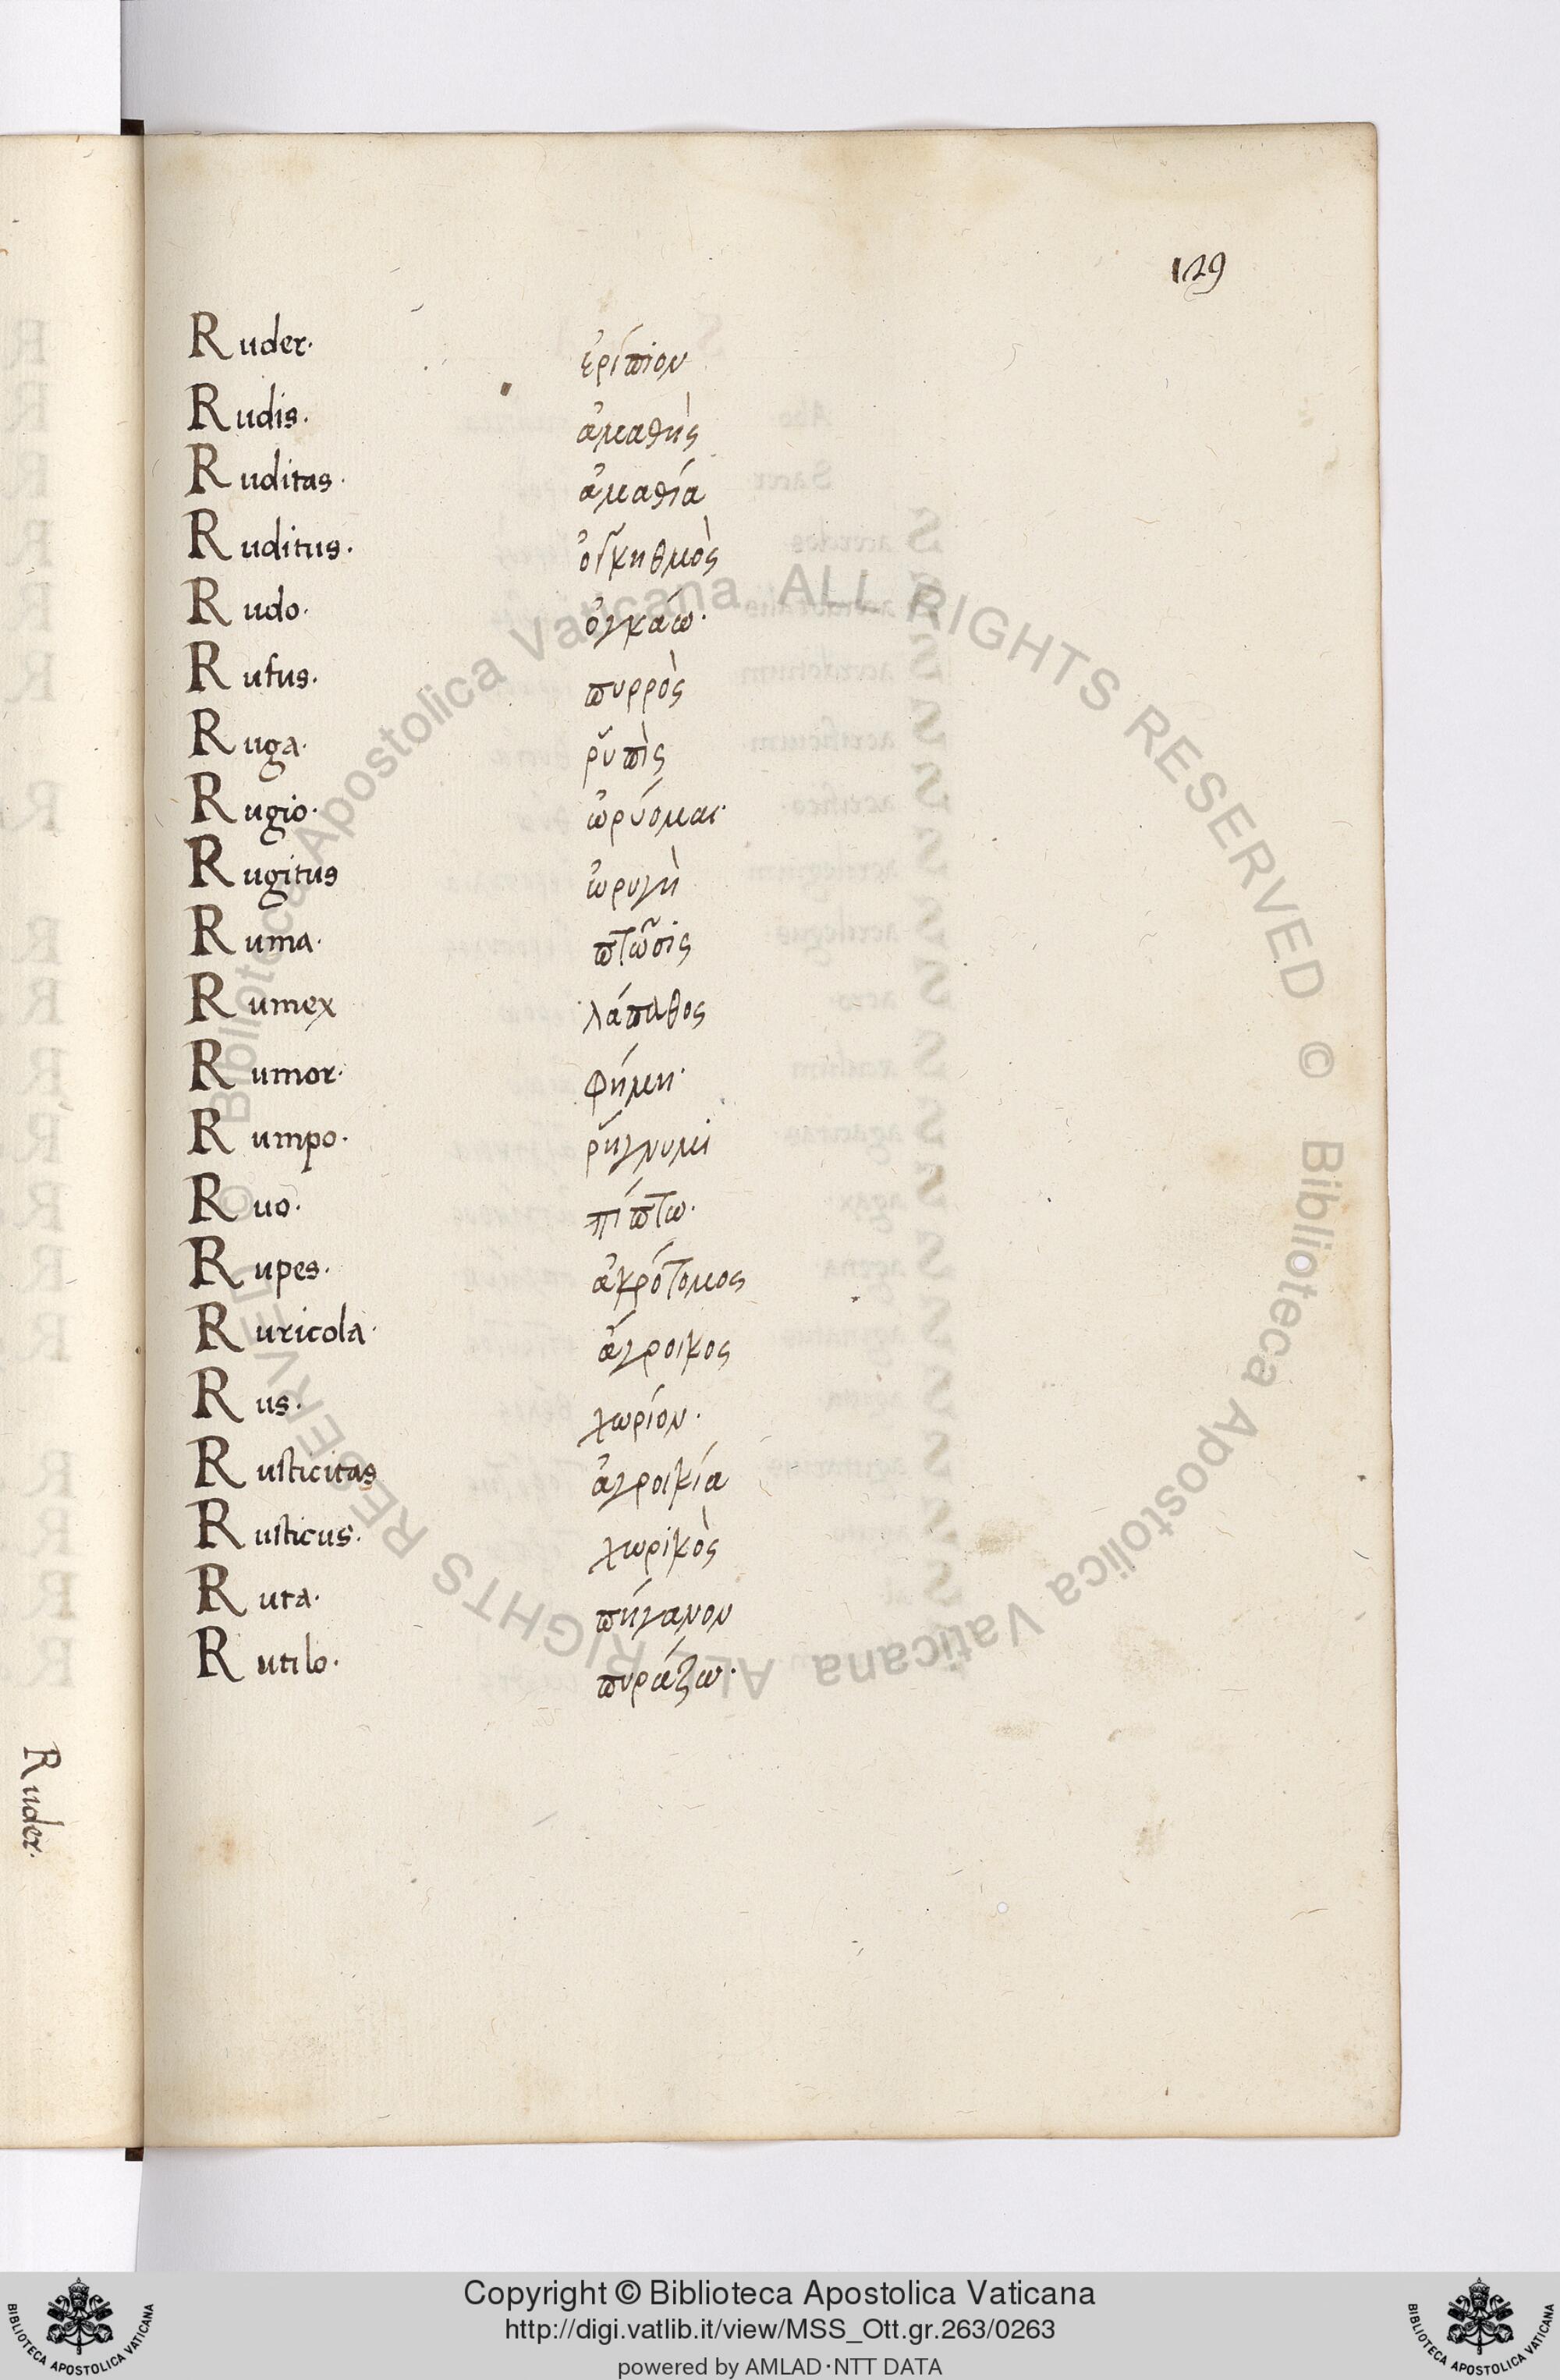 129
Ruder. ἐρίπιον
Rudis. ἀμαθὴς
Ruditas. ἀμαθία
Ruditus. ὀγκηθμὸς
Rudo. ὀγκάω.
Rufus. πυρρὸς
Ruga. ῥυπὶς
Rugio. ὠρύομαι.
Rugitus ὠρυγὴ
Ruma. πτῶσις
Rumex λάπαθος
Rumor. φήμη.
Rumpo. ῥήγνυμι
Ruo. πίπτω.
Rupes. ἀκρότομος
Ruricola. ἄγροικος
Rus. χωρίον.
Rusticitas ἀγροικία
Rusticus. χωρικὸς
Ruta. πήγανον
Rutilo. πυράζω.
Ruder.
© Biblioteca Apostolica Vaticana ALL RIGHTS RESERVED © Biblioteca Apostolica Vaticana ALL RIGHTS RESERVED
Copyright © Biblioteca Apostolica Vaticana
http://digi.vatlib.it/view/MSS_Ott.gr.263/0263
powered by AMLAD·NTT DATA
BIBLIOTECA APOSTOLICA VATICANA
BIBLIOTECA APOSTOLICA VATICANA